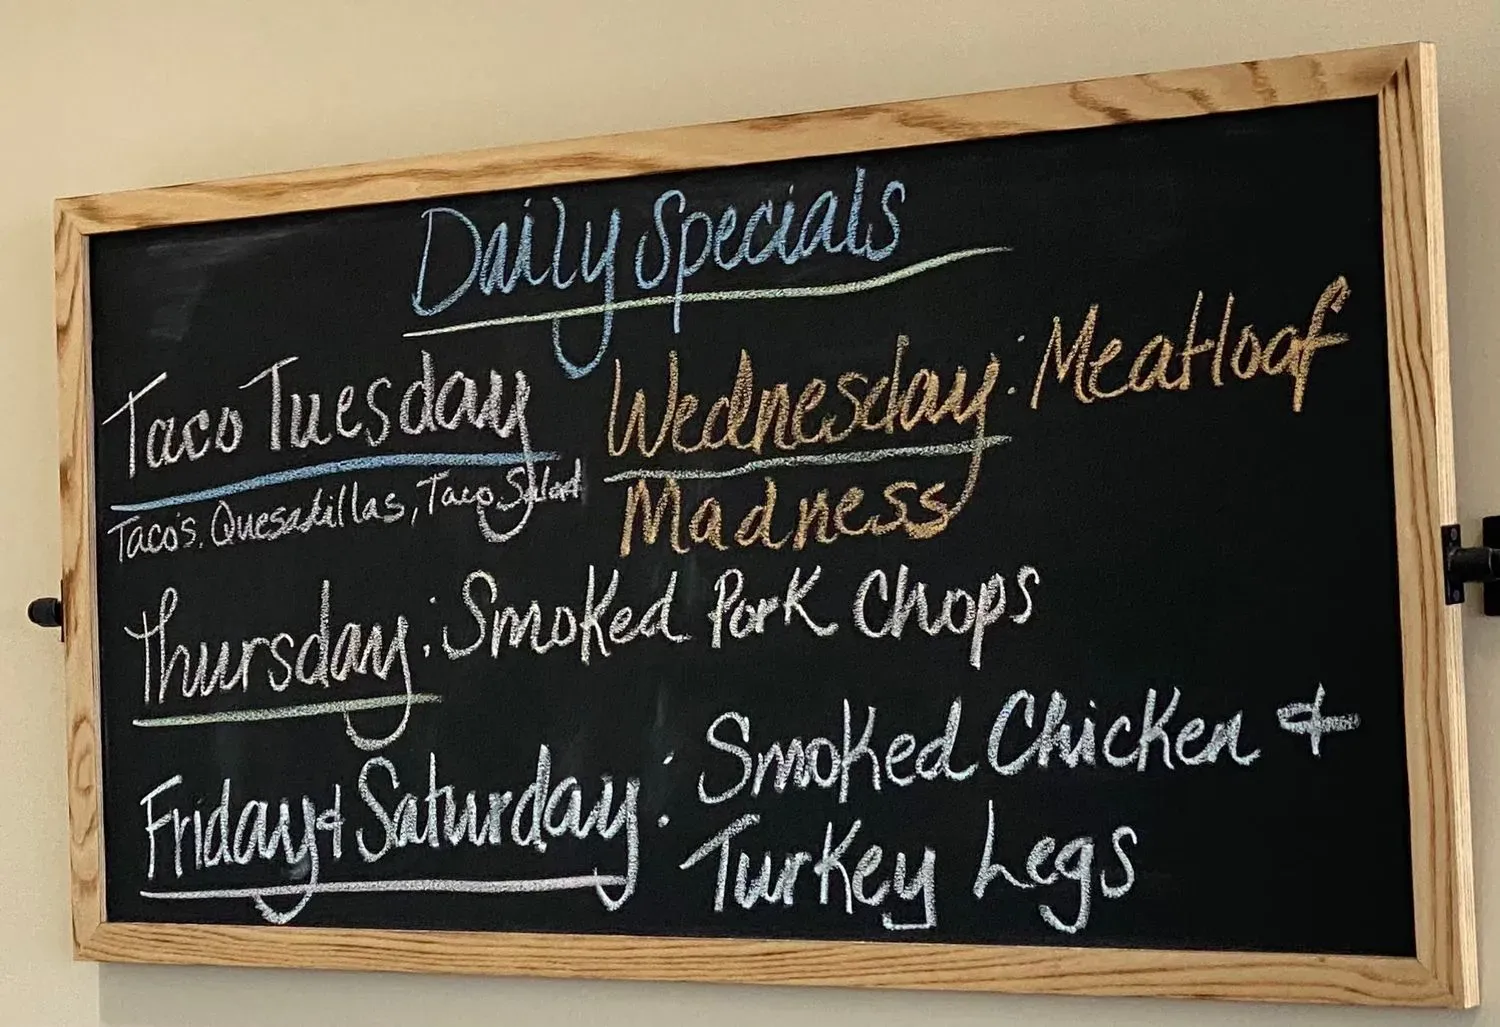 Daily Specials
Taco Tuesday
Taco's, Quesadillas, Taco Salad
Wednesday: Meatloaf
Madness
Thursday: Smoked Pork Chops
Friday & Saturday: Smoked Chicken &
Turkey Legs